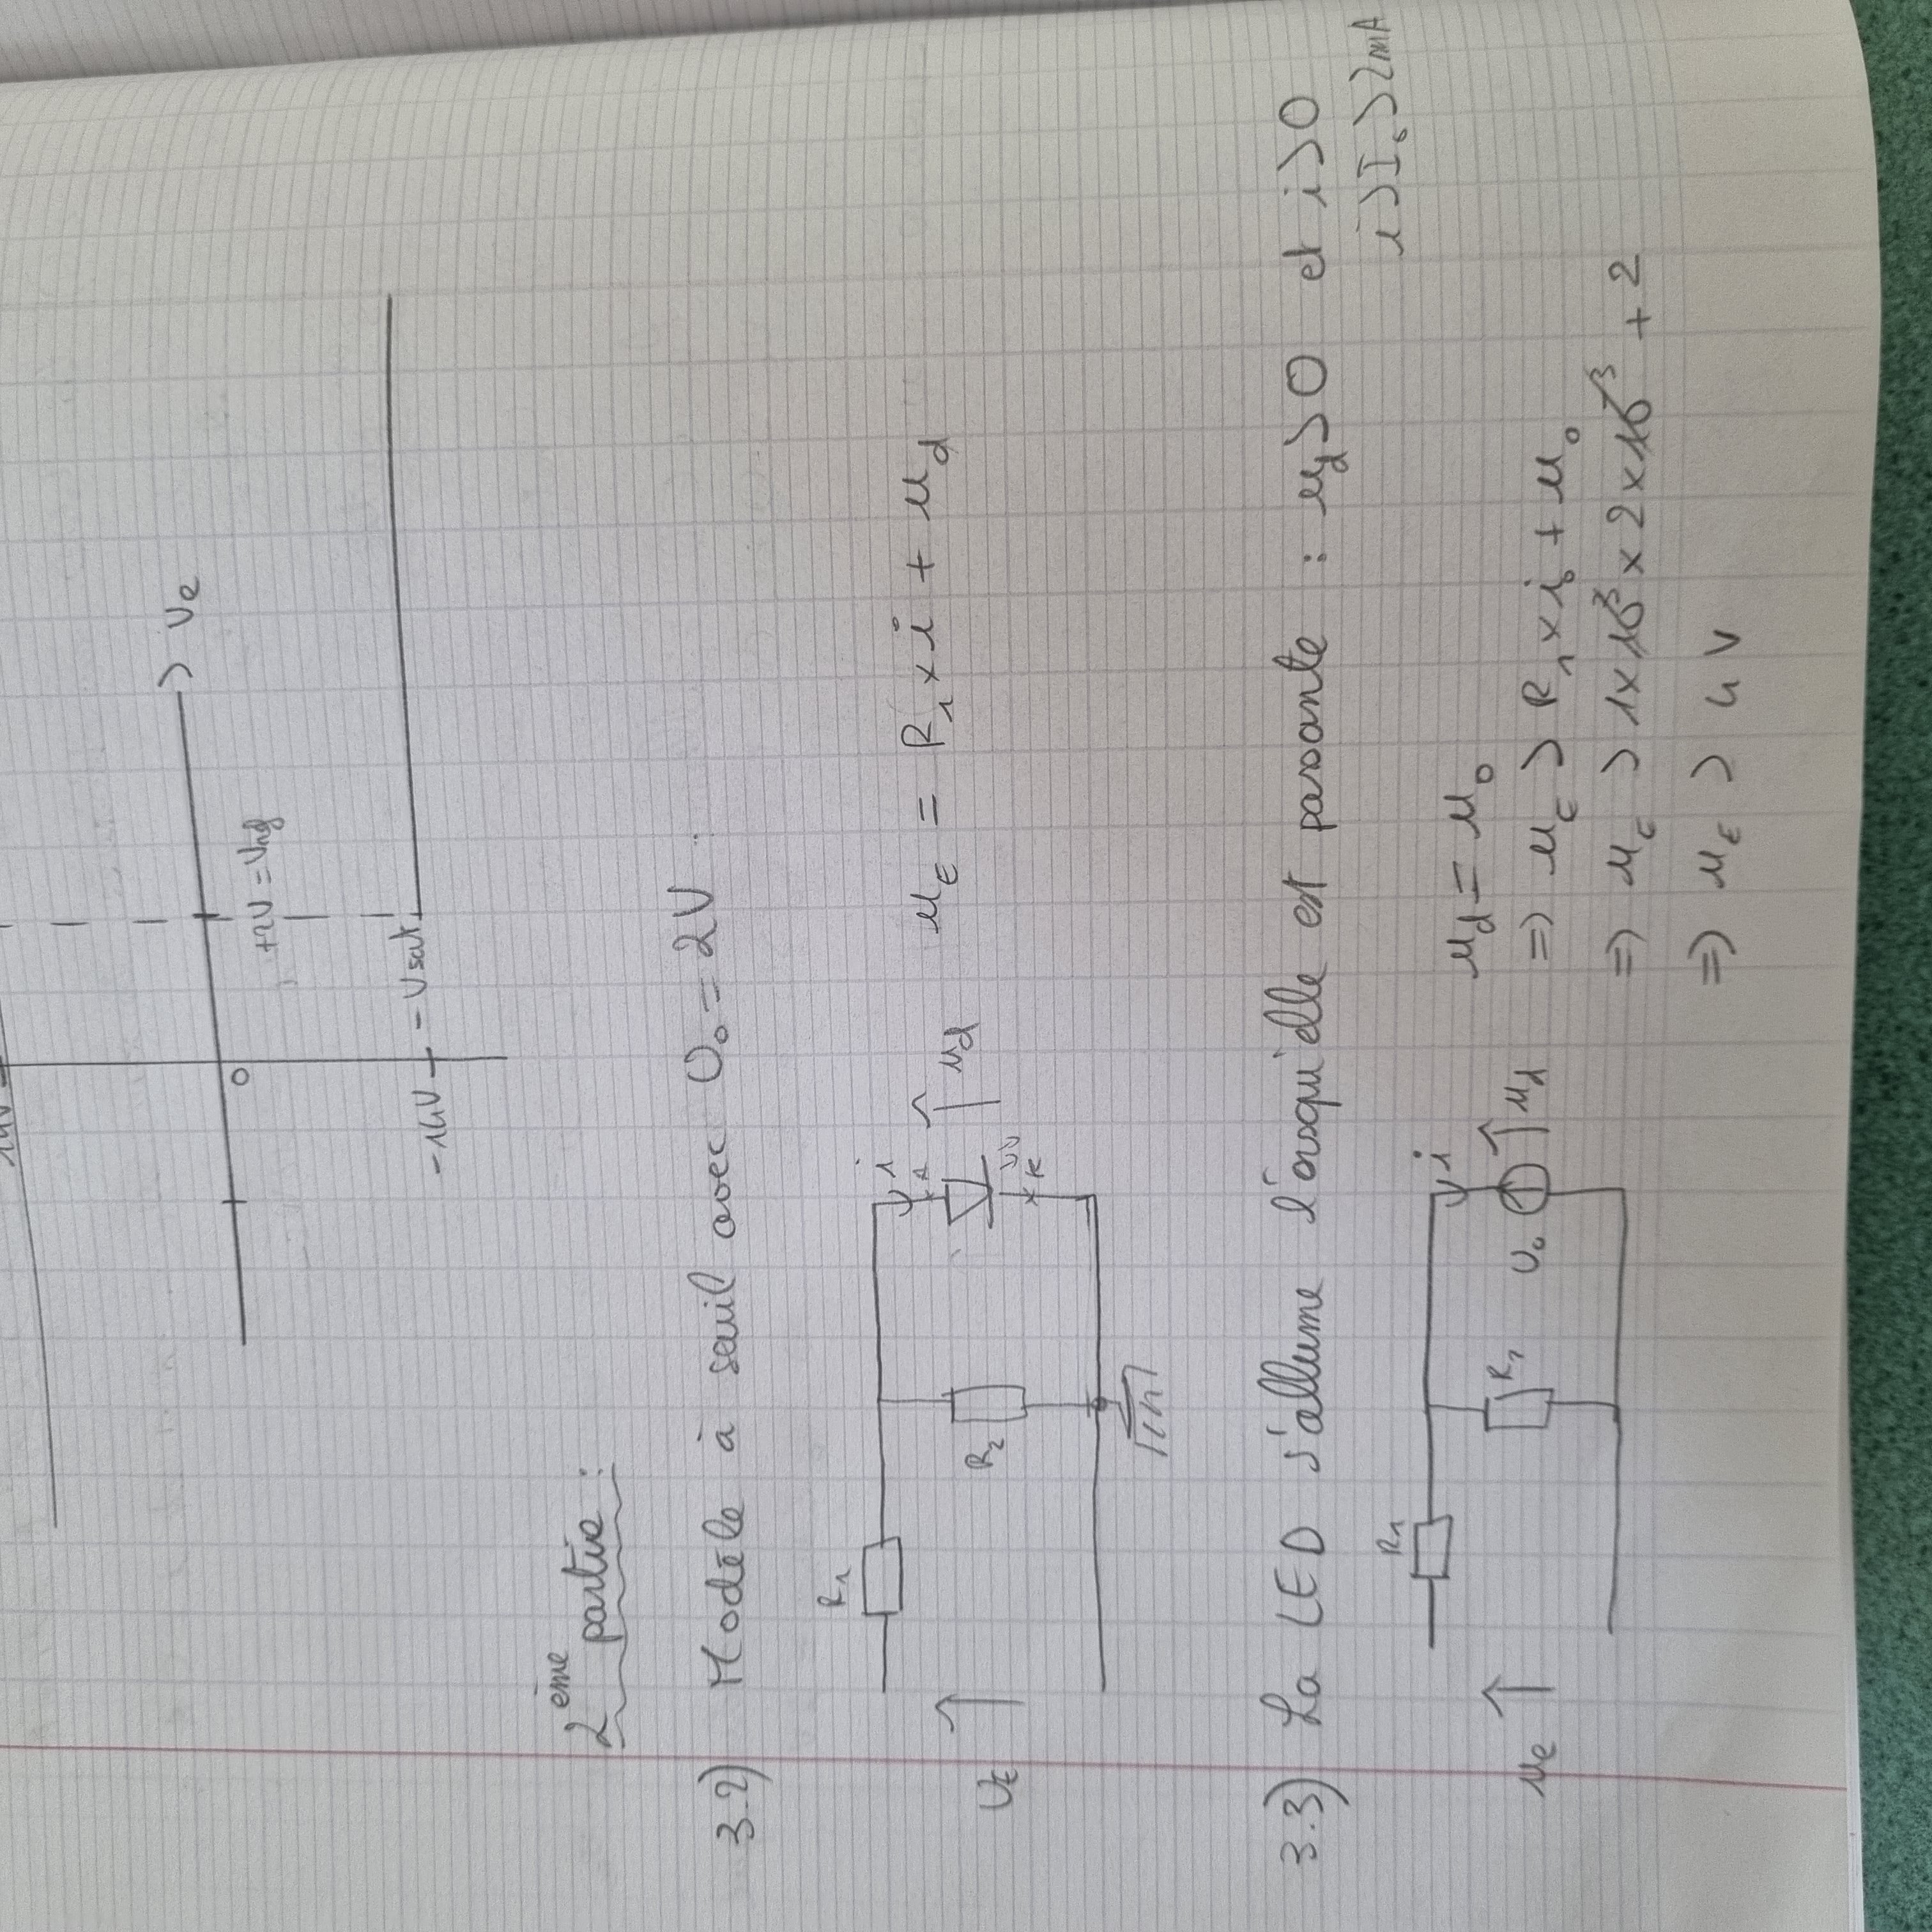 > Ve
0
+2V = Vref
-14V - Vsat
2ème partie :
3.2) Modèle à seuil avec U₀ = 2V
R₁
i
A
K
R₂
u_E
u_d
u_E = R₁ × i + u_d
3.3) La LED s'allume l'orsqu'elle est passante : u_d > 0 et i > 0
i > I₀ > 2mA
R₁
i
R₁
U₀
u_d
u_e
u_d = u₀
=> u_E > R₁ × i₀ + u₀
=> u_E > 1×10³ × 2 × 10⁻³ + 2
=> u_E > 4 V